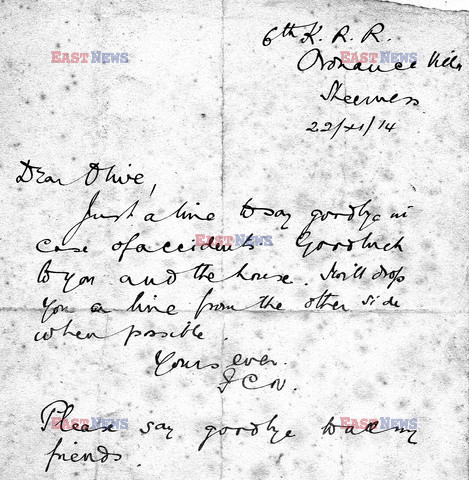 6th K. R. R.
Ordnance Villa
Sheerness
22/XI/14
Dear Olive,
Just a line to say goodbye in
case of accidents Good luck
to you and the house. I will drop
you a line from the other side
when possible.
Yours ever.
F C N.
Please say goodbye to all my
friends.
EASTNEWS
EASTNEWS
EASTNEWS
EASTNEWS
EASTNEWS